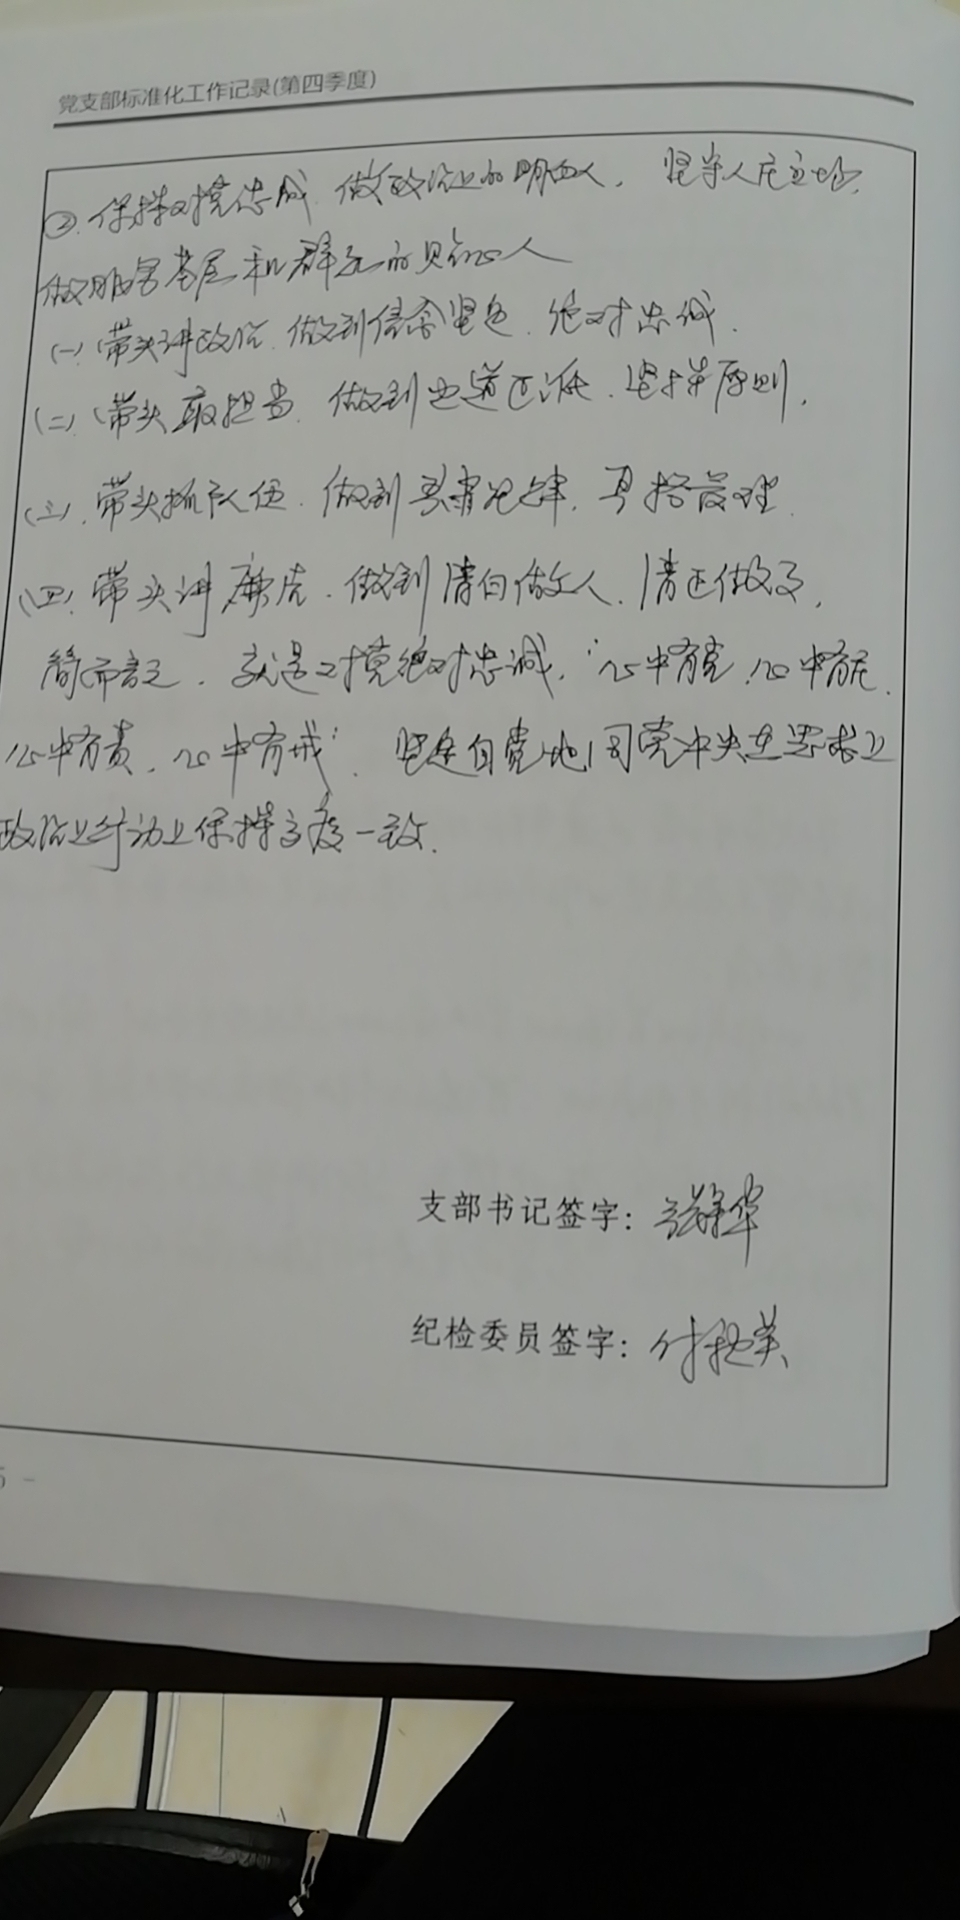 党支部标准化工作记录(第四季度)
②.保持对党忠诚.做政治上的明白人.坚守人民立场,
做服务基层和群众的贴心人
(一)带头讲政治.做到信念坚定.绝对忠诚.
(二)带头敢担当.做到 坚持原则,
(三).带头抓队伍.做到严肃纪律.严格管理.
(四)带头讲廉洁.做到清白做人.清正做事,
简而言之.就是对党绝对忠诚,"心中有党,心中有民.
心中有责,心中有戒".坚定自觉地同党中央在思想上
政治上行动上保持高度一致.
支部书记签字:
纪检委员签字: